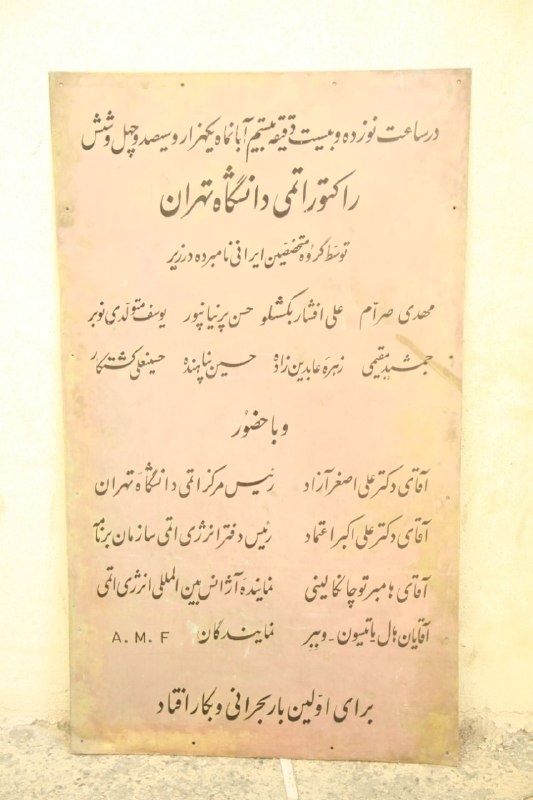 در ساعت نوزده و بیست دقیقه بیستم آبانماه یکهزار و سیصد و چهل و شش
راکتور اتمی دانشگاه تهران
توسط گروه متخصصین ایرانی نامبرده در زیر
مهدی صرآم علی افشار بکشلو حسن پرنیانپور یوسف متولدی نوبر
جمشید مقیمی زهره عابدین زاده حسین پناهنده حسینعلی کشتکار
و با حضور
آقای دکتر علی اصغر آزاد رئیس مرکز اتمی دانشگاه تهران
آقای دکتر علی اکبر اعتماد رئیس دفتر انرژی اتمی سازمان برنامه
آقای هامبرتو چانکالینی نماینده آژانس بین المللی انرژی اتمی
آقایان هال یاتیسون - ویبر نمایندگان A.M.F
برای اوّلین بار بحرانی و بکار افتاد